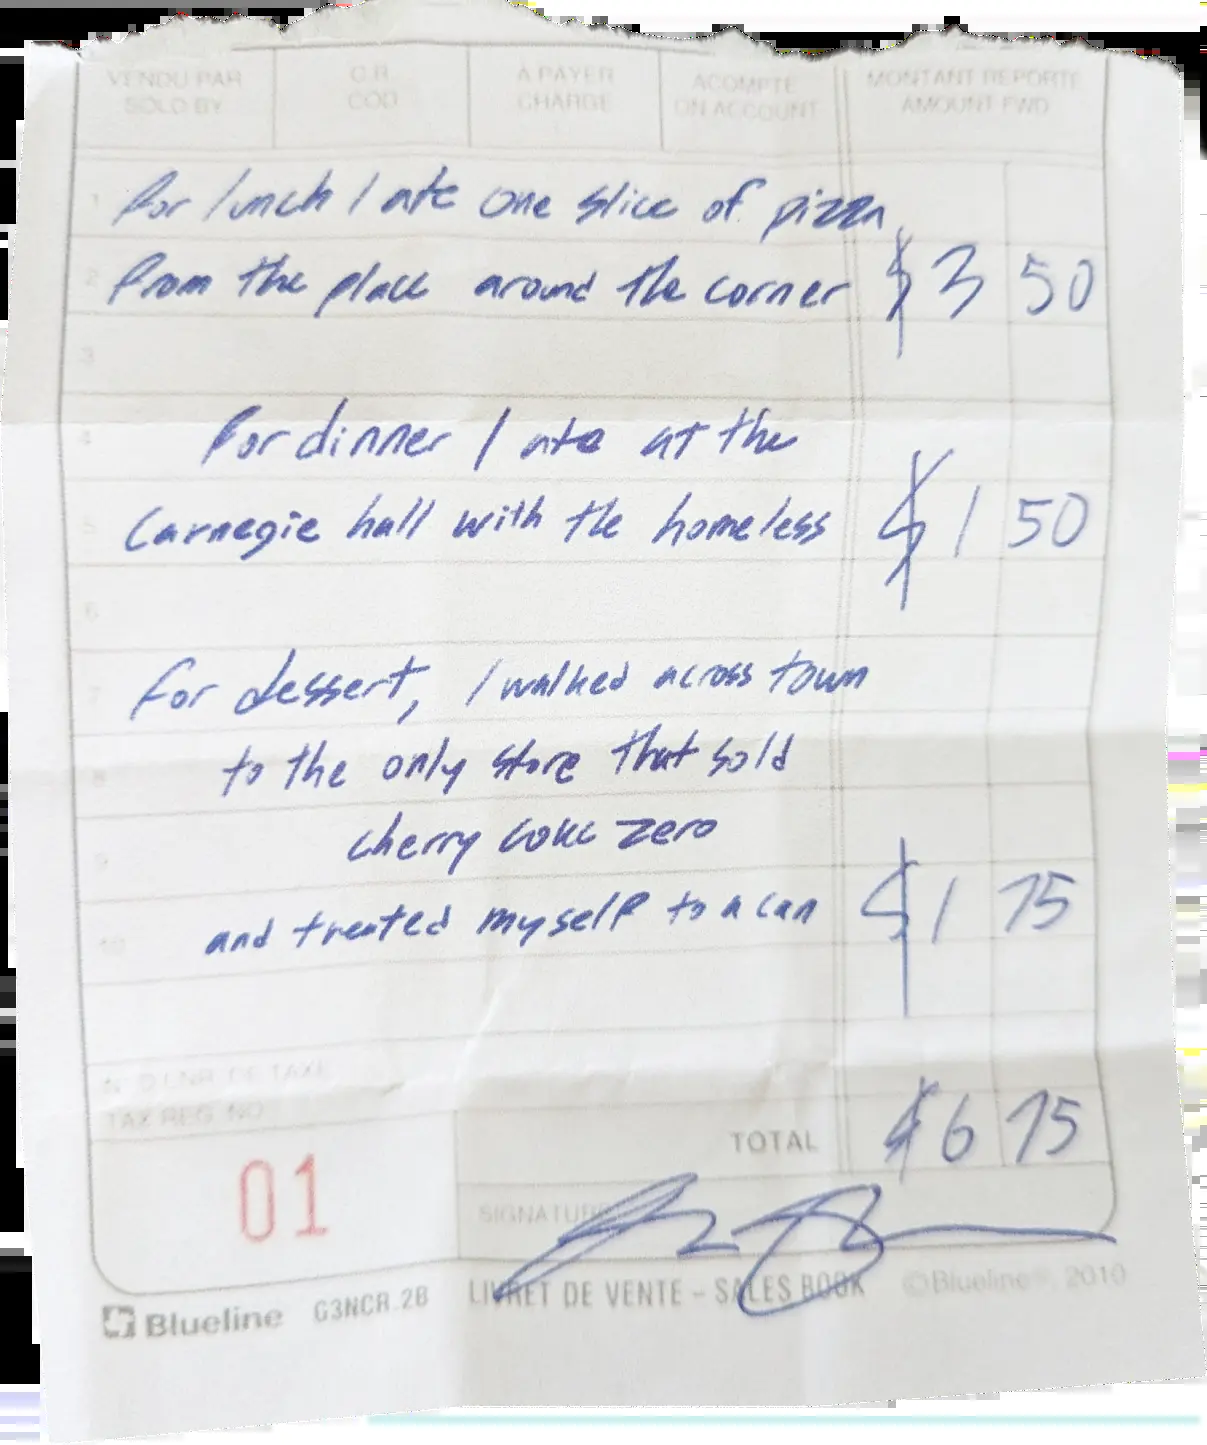 VENDU PAR
SOLD BY
C.R.
COD
A PAYER
CHARGE
ACOMPTE
ON ACCOUNT
MONTANT REPORTE
AMOUNT FWD
1 For lunch I ate one slice of pizza
2 from the place around the corner $3 50
3
4 For dinner I ate at the
5 Carnegie hall with the homeless $1 50
6
7 For dessert, I walked across town
8 to the only store that sold
9 cherry coke zero
10 and treated myself to a can $1 75
N° D'ENR. DE TAXE
TAX REG. NO.
01
TOTAL $6 75
SIGNATURE
Blueline G3NCR.2B LIVRET DE VENTE - SALES BOOK ©Blueline®, 2010